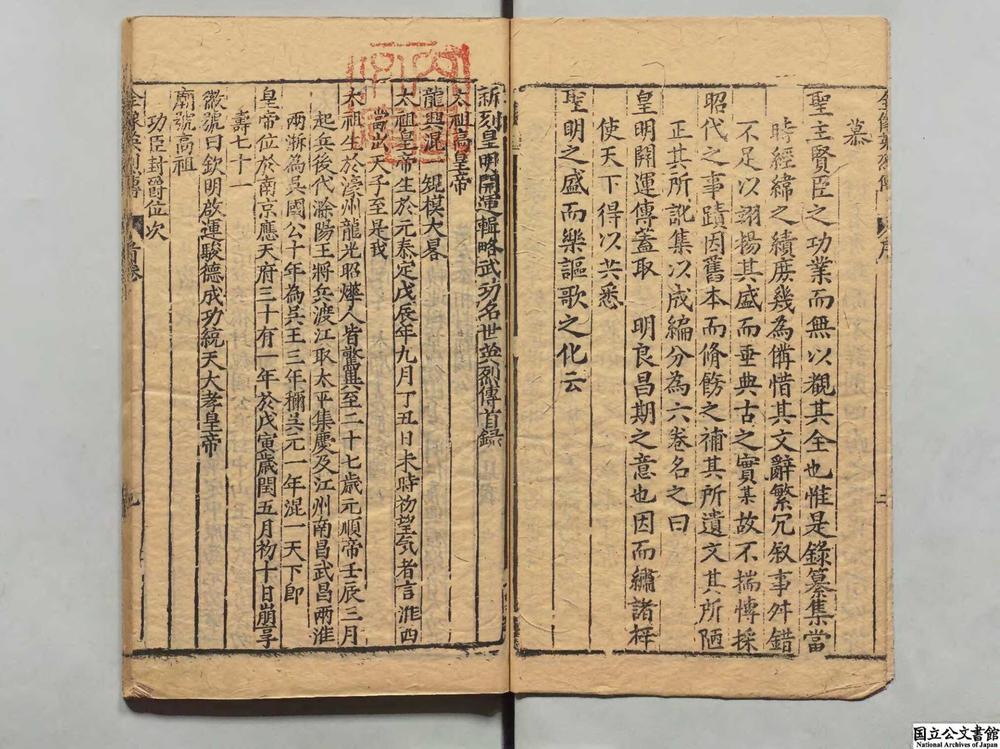 慕
聖主賢臣之功業而無以觀其全也惟是錄纂集當
時經緯之績庶幾為備惜其文辭繁冗叙事舛錯
不足以翊揚其盛而垂典古之實某故不揣慱採
昭代之事蹟因舊本而脩餙之補其所遺文其所陋
正其所訛集以成編分為六卷名之曰
皇明開運傳蓋取 明良昌期之意也因而繡諸梓
使天下得以共悉
聖明之盛而樂謳歌之化云
新刻皇明開運輯略武功名世英烈傳首錄
太祖高皇帝
龍興混 規模大畧
太祖皇帝生於元泰定戊辰年九月丁丑日未時初望気者言淮西
當出天子至是我
太祖生於濠州龍光昭燁人皆驚異至二十七歲元順帝壬辰三月
起兵後代滁陽王將兵渡江取太平集慶及江州南昌武昌兩淮
兩浙為吳國公十年為吳王三年稱吳元一年混一天下即
皇帝位於南京應天府三十有一年於戊寅歲閏五月初十日崩享
壽七十一
徽號曰欽明啟運駿德成功統天大孝皇帝
廟號高祖
功臣封爵位次
国立公文書館
National Archives of Japan